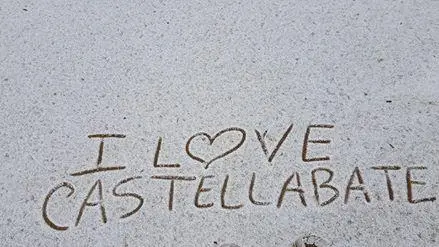 I L♡VE
CASTELLABATE